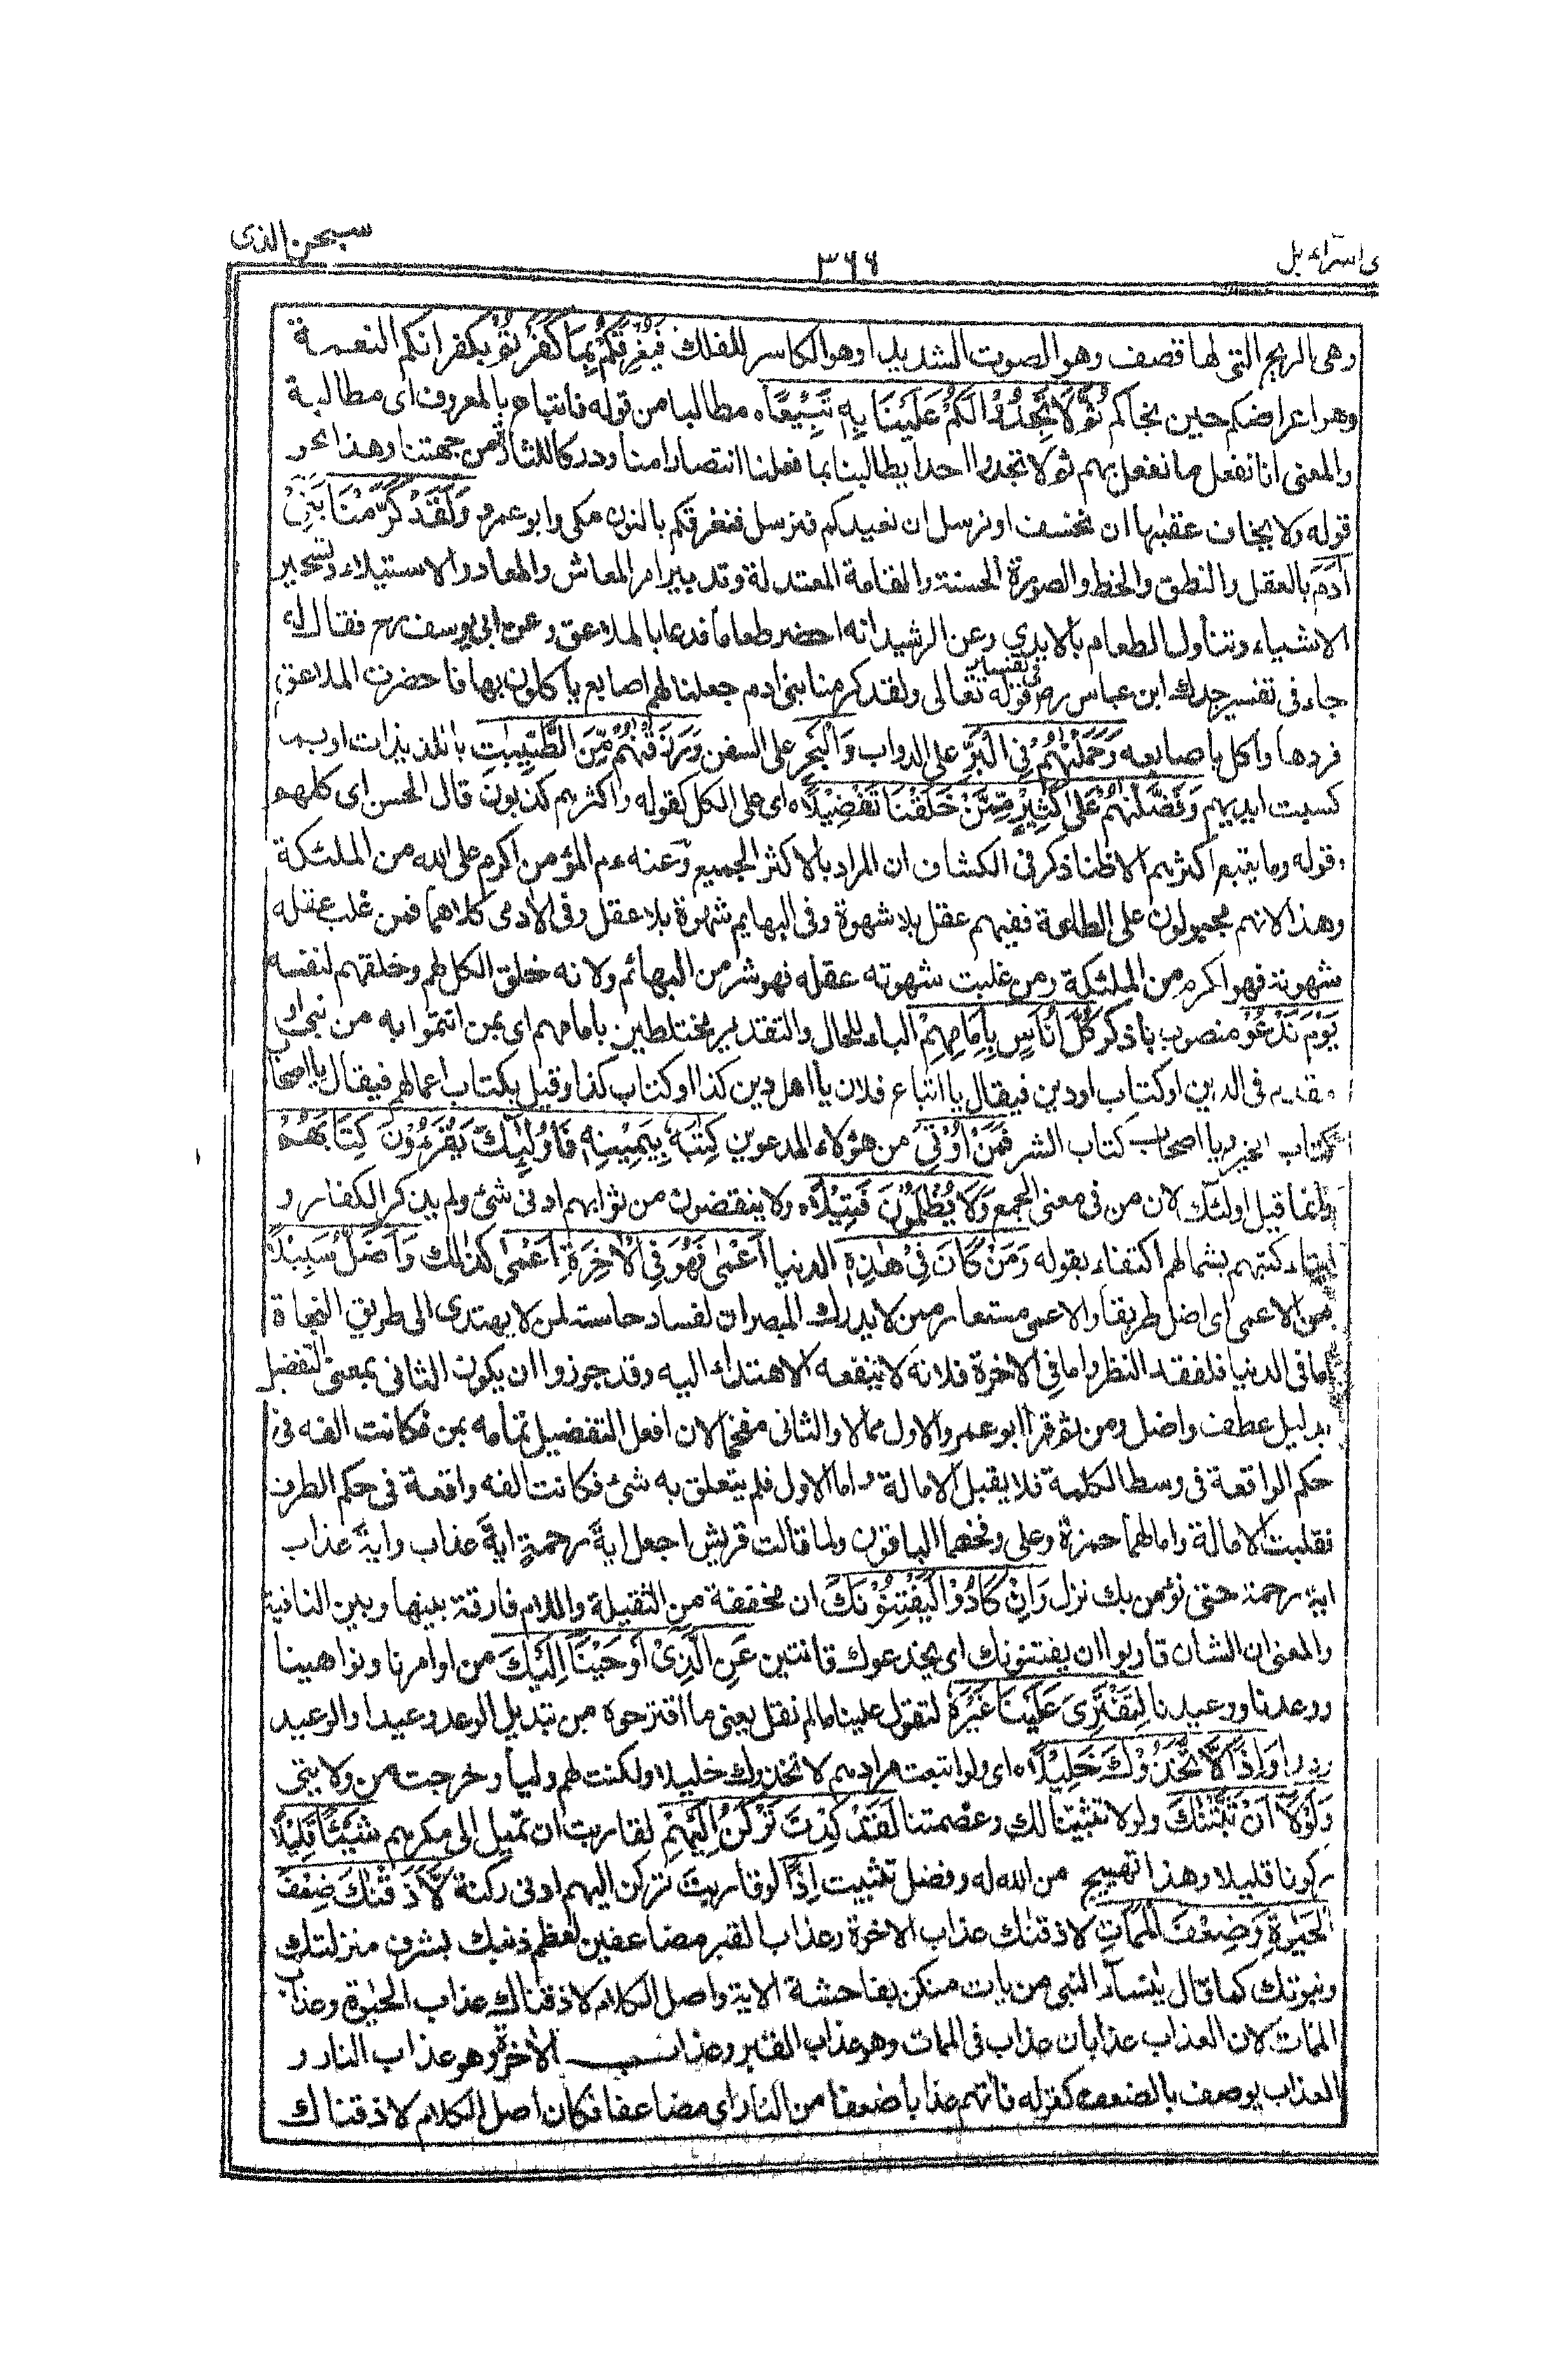 سبحن الذى
٣٦٦
ى اسرآءيل
وهى الريح التى لها قصف وهو الصوت الشديد او هو الكاسر للفلك فَيُغْرِقَكُمْ بِمَا كَفَرْتُمْ بكفرانكم النعمة
وهو اعراضكم حين نجاكم ثُمَّ لَا تَجِدُوْا لَكُمْ عَلَيْنَا بِهٖ تَبِيْعًا ه مطالبا من قوله فاتباع بالمعروف اى مطالبة
والمعنى انا نفعل ما نفعل بهم ثم لا تجدوا احدا يطالبنا بما فعلنا انتصارا منا ودركا للثار من جهتنا وهذا نحو
قوله ولا يخاف عقبٰها ان نخسف او نرسل ان نعيدكم فنرسل فنغرقكم بالنون مكى وابو عمرو وَلَقَدْ كَرَّمْنَا بَنِيْٓ
اٰدَمَ بالعقل والنطق والخط والصورة الحسنة والقامة المعتدلة وتدبير امر المعاش والمعاد والاستيلاء وتسخير
الاشياء وتناول الطعام بالايدى وعن الرشيد انه احضر طعاما فدعا بالملاعق وعن ابى يوسف رح فقال له
جاء فى تفسير جدك ابن عباس رض فى تفسير قوله تعالى ولقد كرمنا بنى ادم جعلنا لهم اصابع ياكلون بها فاحضرت الملاعق
فردها واكل باصابعه وَحَمَلْنٰهُمْ فِى الْبَرِّ على الدواب وَالْبَحْرِ على السفن وَرَزَقْنٰهُمْ مِّنَ الطَّيِّبٰتِ باللذيذات او بما
كسبت ايديهم وَفَضَّلْنٰهُمْ عَلٰى كَثِيْرٍ مِّمَّنْ خَلَقْنَا تَفْضِيْلًا ه اى على الكل كقوله واكثرهم كذبون قال الحسن اى كلهم
وقوله وما يتبع اكثرهم الا ظنا ذكر فى الكشاف ان المراد بالاكثر الجميع وعنه ءم المؤمن اكرم على الله من الملئكة
وهذا لانهم مجبولون على الطاعة ففيهم عقل بلا شهوة وفى البهايم شهوة بلا عقل وفى الأدمى كلاهما فمن غلب عقله
شهوته فهو اكرم من الملئكة ومن غلبت شهوته عقله فهو شر من البهائم ولانه خلق الكل لهم وخلقهم لنفسه
يَوْمَ نَدْعُوْ منصوب باذكر كُلَّ اُنَاسٍ بِاِمَامِهِمْ الباء للحال والتقدير مختلطين بامامهم اى بمن ائتموا به من نبى او
مقدم فى الدين او كتاب او دين فيقال يا اتباع فلان يا اهل دين كذا او كتاب كذا وقيل بكتاب اعمالهم فيقال يا اصحاب
كتاب الخير ويا اصحاب كتاب الشر فَمَنْ اُوْتِىَ من هؤلاء المدعوين كِتٰبَهٗ بِيَمِيْنِهٖ فَاُولٰٓئِكَ يَقْرَءُوْنَ كِتَابَهُمْ
وانما قيل اولئك لان من فى معنى الجمع وَلَا يُظْلَمُوْنَ فَتِيْلًا ه ولا ينقصون من ثوابهم ادنى شئ ولم يذكر الكفار و
ايتاء كتبهم بشمالهم اكتفاء بقوله وَمَنْ كَانَ فِيْ هٰذِهٖ الدنيا اَعْمٰى فَهُوَ فِى الْاٰخِرَةِ اَعْمٰى كذلك وَاَضَلُّ سَبِيْلًا
من الاعمى اى اضل طريقا والاعمى مستعار ممن لا يدرك المبصرات لفساد حاسته لمن لا يهتدى الى طريق النجاة
اما فى الدنيا فلفقد النظر واما فى الاخرة فلانه لا تنفعه الاهتداء اليه وقد جوزوا ان يكون الثانى بمعنى التفضيل
بدليل عطف واضل ومن ثم قرأ ابو عمرو الاول ممالا والثانى مفخما لان افعل التفضيل تمامه بمن فكانت الفه فى
حكم الواقعة فى وسط الكلمة فلا يقبل الامالة واما الاول فلم يتعلق به شئ فكانت الفه واقعة فى حكم الطرف
فقلبت الامالة وامالهما حمزة وعلى وفخمهما الباقون ولما قالت قريش اجعل اية رحمة اية عذاب واية عذاب
اية رحمة حتى نؤمن بك نزل وَاِنْ كَادُوْا لَيَفْتِنُوْنَكَ ان مخففة من الثقيلة واللام فارقة بينها وبين النافية
والمعنى ان الشان قاربوا ان يفتنونك اى يخدعوك فاتنين عَنِ الَّذِىْٓ اَوْحَيْنَآ اِلَيْكَ من اوامرنا ونواهينا
ووعدنا ووعيدنا لِتَفْتَرِىَ عَلَيْنَا غَيْرَهٗ لتقول علينا ما لم نقل يعنى ما اقترحوه من تبديل الوعد وعيدا والوعيد
وعدا وَاِذًا لَّاتَّخَذُوْكَ خَلِيْلًا ه اى ولو اتبعت مرادهم لاتخذوك خليلا ولكنت لهم وليا وخرجت من ولايتى
وَلَوْلَآ اَنْ ثَبَّتْنٰكَ ولولا تثبيتنا لك وعصمتنا لَقَدْ كِدْتَّ تَرْكَنُ اِلَيْهِمْ لقاربت ان تميل الى مكرهم شَيْئًا قَلِيْلًا
ركونا قليلا وهذا تهييج من الله له وفضل تثبيت اِذًا لو قاربت تركن اليهم ادنى ركنة لَّاَذَقْنٰكَ ضِعْفَ
الْحَيٰوةِ وَضِعْفَ الْمَمَاتِ لاذقنك عذاب الاخرة وعذاب القبر مضاعفين لعظم ذنبك بشرف منزلتك
ونبوتك كما قال ينسآء النبى من يات منكن بفاحشة الاية واصل الكلام لاذقناك عذاب الحيوة وعذاب
الممات لان العذاب عذابان عذاب فى الممات وهو عذاب القبر وعذاب الأخرة وهو عذاب النار و
العذاب يوصف بالضعف كقوله فاتهم عذابا ضعفا من النار اى مضاعفا فكان اصل الكلام لاذقناك